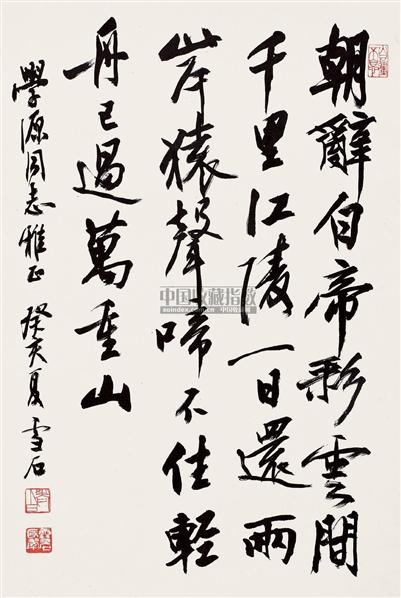 朝辭白帝彩雲間
千里江陵一日還兩
岸猿聲啼不住輕
舟已過萬重山
學源同志雅正 癸亥夏 雪石
中国收藏指数